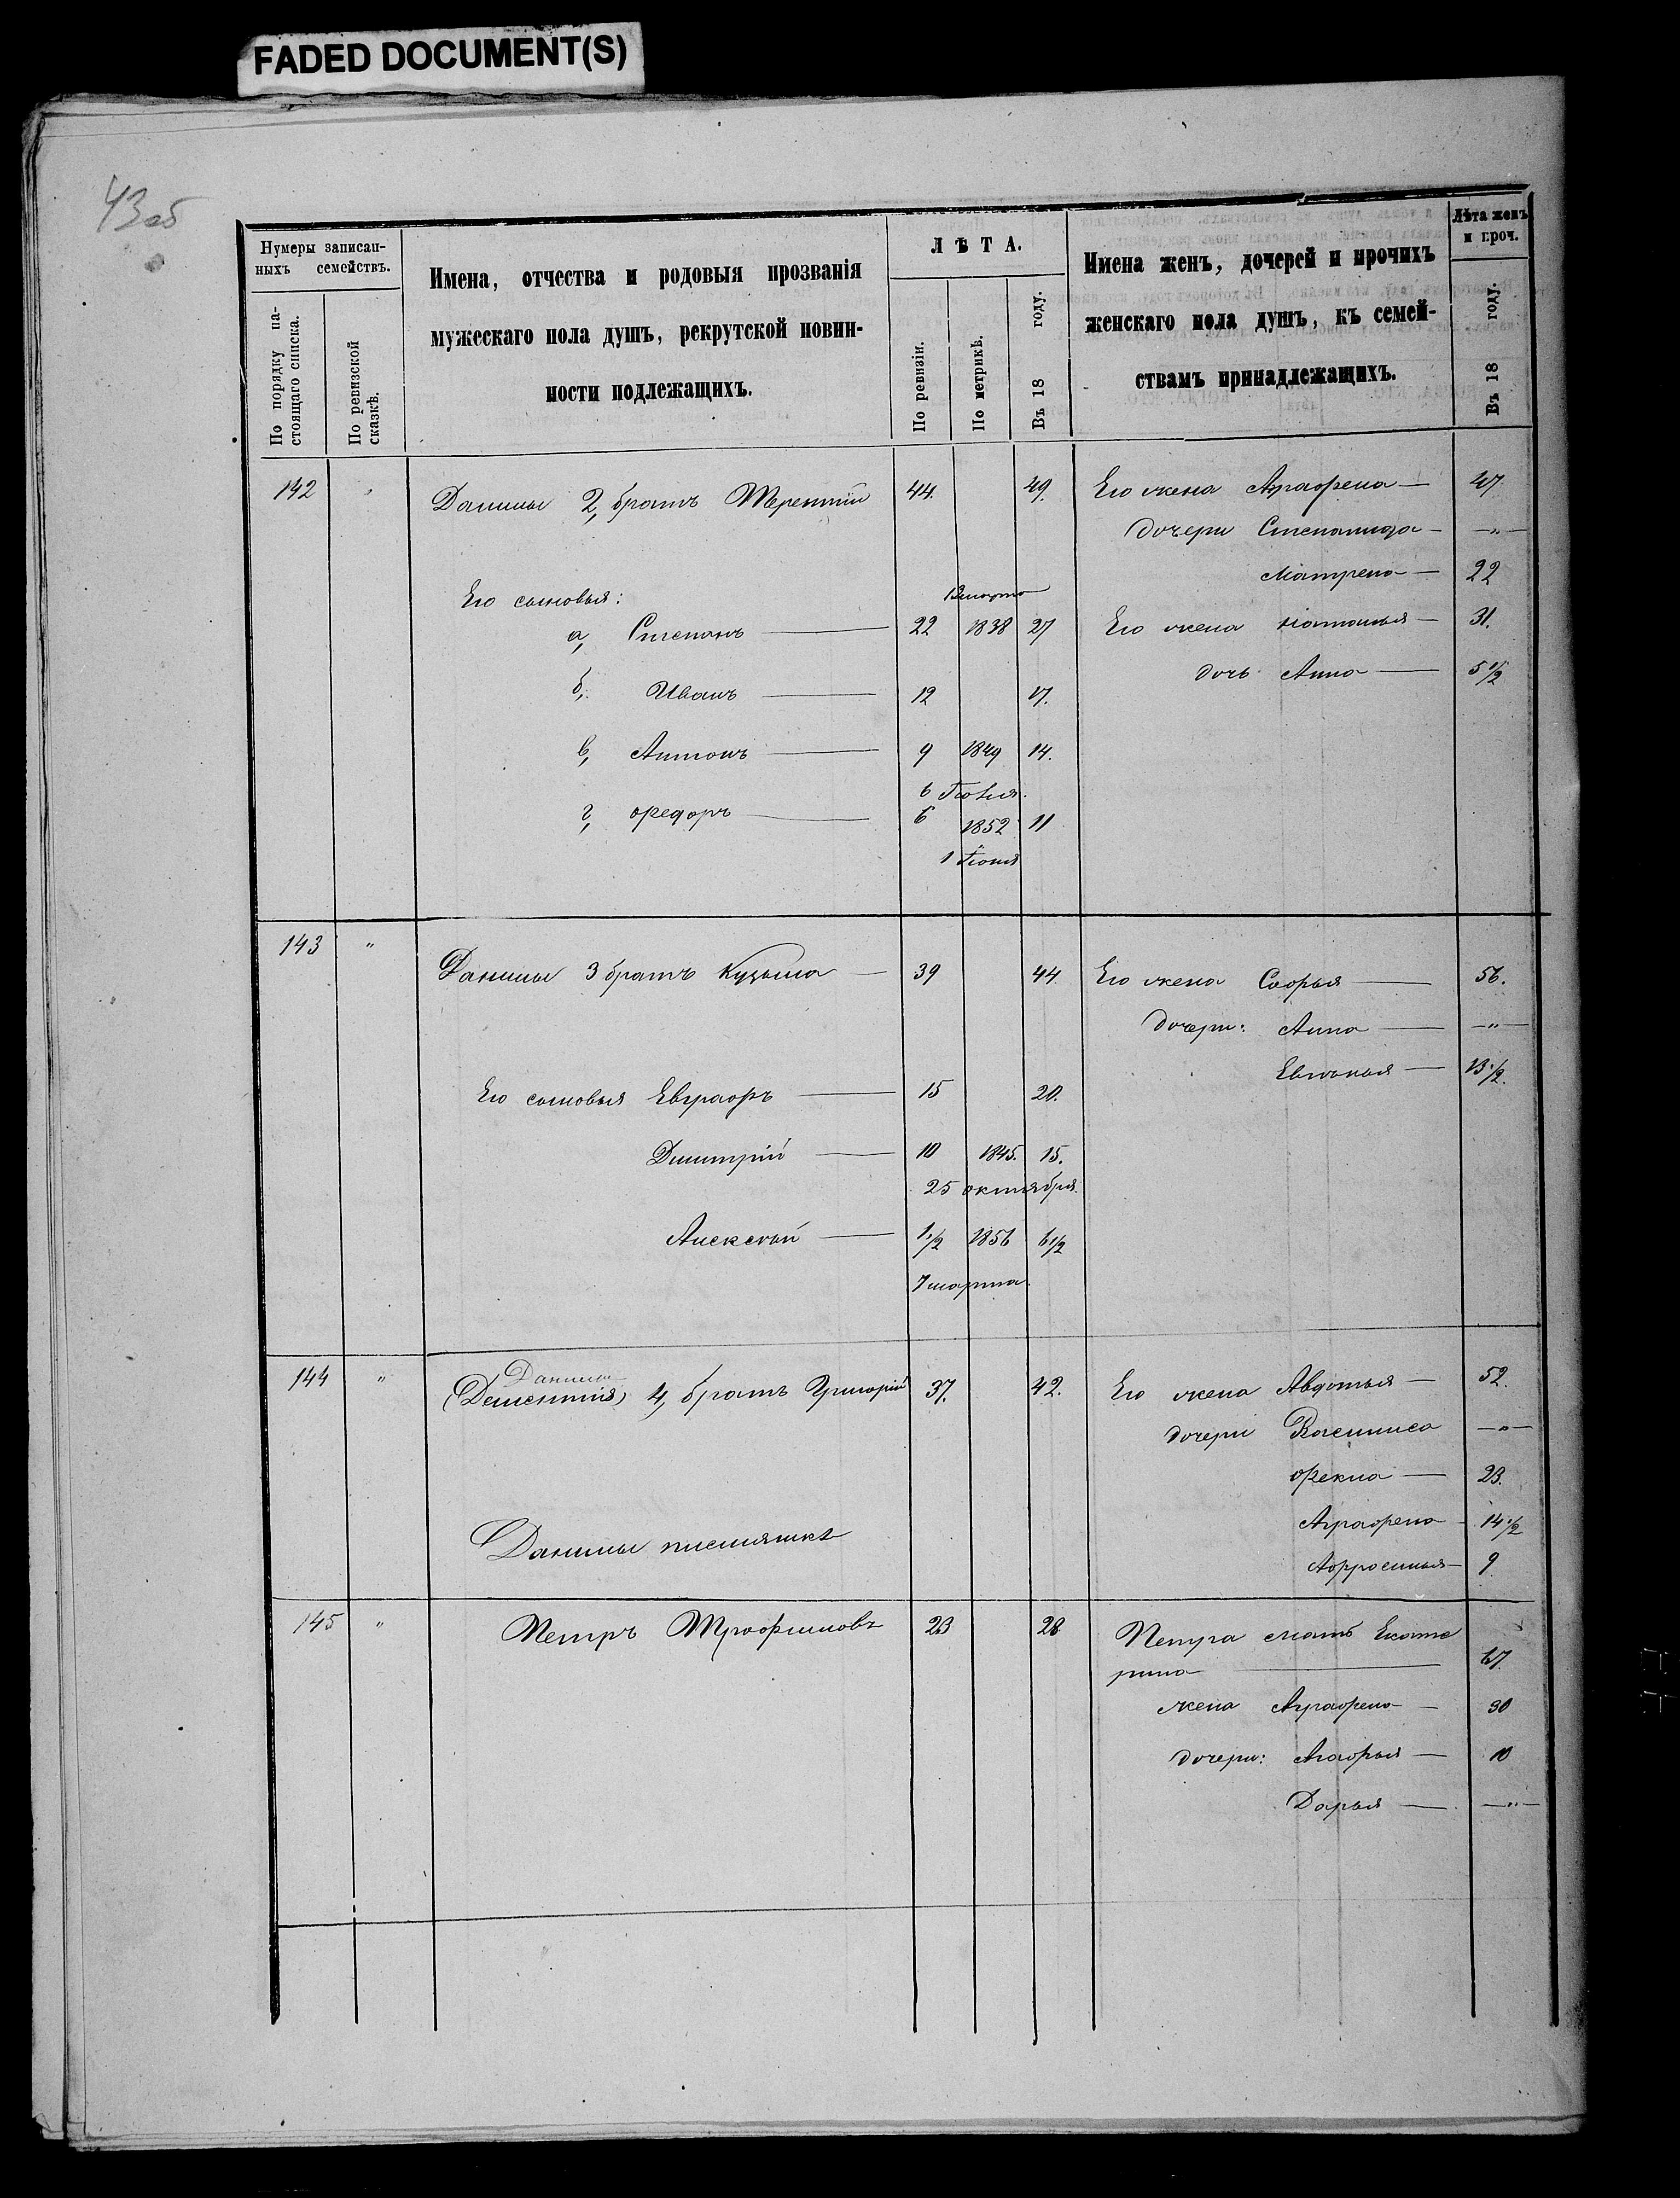 FADED DOCUMENT(S)
43об
Нумеры записан-
ныхъ семействъ.
По порядку на-
стоящаго списка.
По ревизской
сказкѣ.
Имена, отчества и родовыя прозванія
мужескаго пола душъ, рекрутской повин-
ности подлежащихъ.
ЛѢТА.
По ревизіи.
По метрикѣ.
Въ 18 году.
Имена женъ, дочерей и прочихъ
женскаго пола душъ, къ семей-
ствамъ принадлежащихъ.
Лѣта женъ
и проч.
Въ 18 году.
142 Данилы 2, братъ Терентій 44. 49. Его жена Аграфена — 47
дочери Степанида — — " —
Матрена — 22
Его сыновья: марта
а, Степанъ — 22 1838 27 Его жена Наталья — 31.
дочь Анна — 5 1/2
б, Иванъ — 12 17.
в, Антонъ — 9 1849 14.
6 Іюня.
г, Федоръ — 6 1852 11
1 Іюня
143 " Данилы 3 братъ Кузьма — 39 44 Его жена Софья — 56.
дочери: Анна — — " —
Евгенья — 13 1/2.
Его сыновья Евграфъ — 15 20.
Димитрій — 10 1845. 15.
25 октября.
Алексѣй — 1 1/2 1856 6 1/2
7 марта.
144 " Данилы
(Дементія) 4, братъ Григорій 37. 42. Его жена Авдотья — 52.
дочери — " —
Фекла — 23.
Аграфена — 14 1/2
9
Данилы
145 " Петръ Трофимовъ 23 28 Петра мать Екате
рина — 67.
жена Аграфена — 30
дочери: Агафья — 10
Дарья — — " —